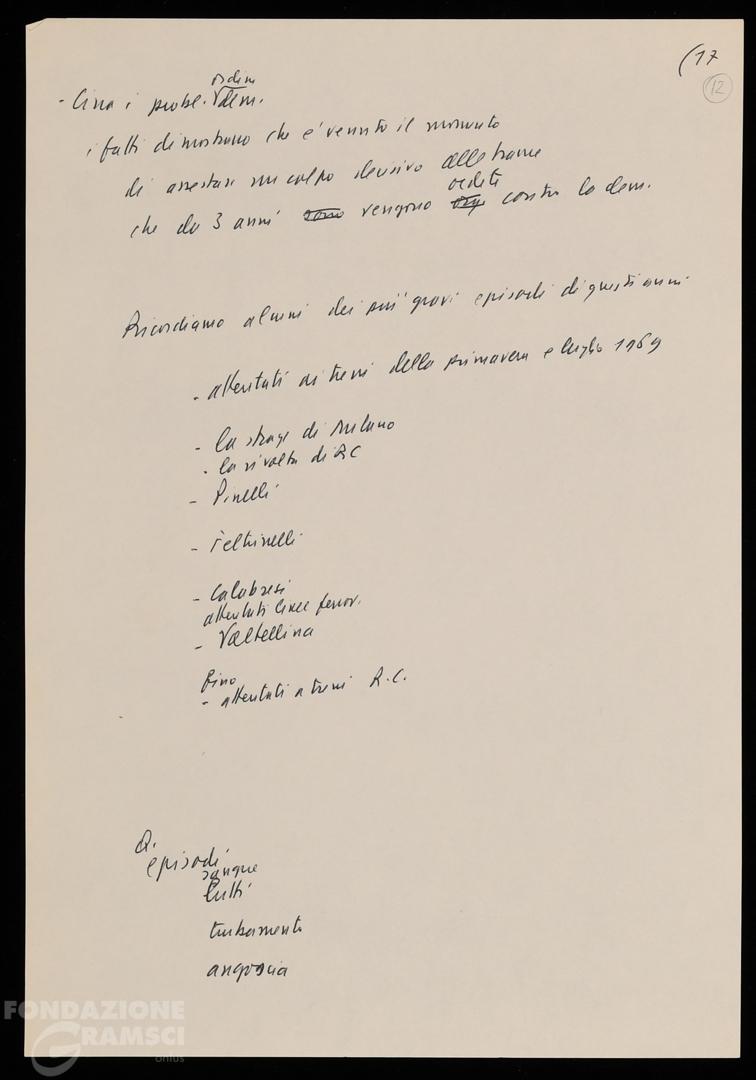 (17
12
- Circa i probl. ordine dem.
i fatti dimostrano che è venuto il momento
di assestare un colpo decisivo alle trame
che da 3 anni sono vengono ordite contro la dem.
Ricordiamo alcuni dei più gravi episodi di questi anni
- attentati ai treni della primavera e luglio 1969
- la strage di Milano
- la rivolta di RC
- Pinelli
- Feltrinelli
- Calabresi
attentati linee ferrov.
- Valtellina
fino
- attentati a treni R.C.
Q.
episodi
sangue
lutti
turbamento
angoscia
FONDAZIONE
GRAMSCI
onlus